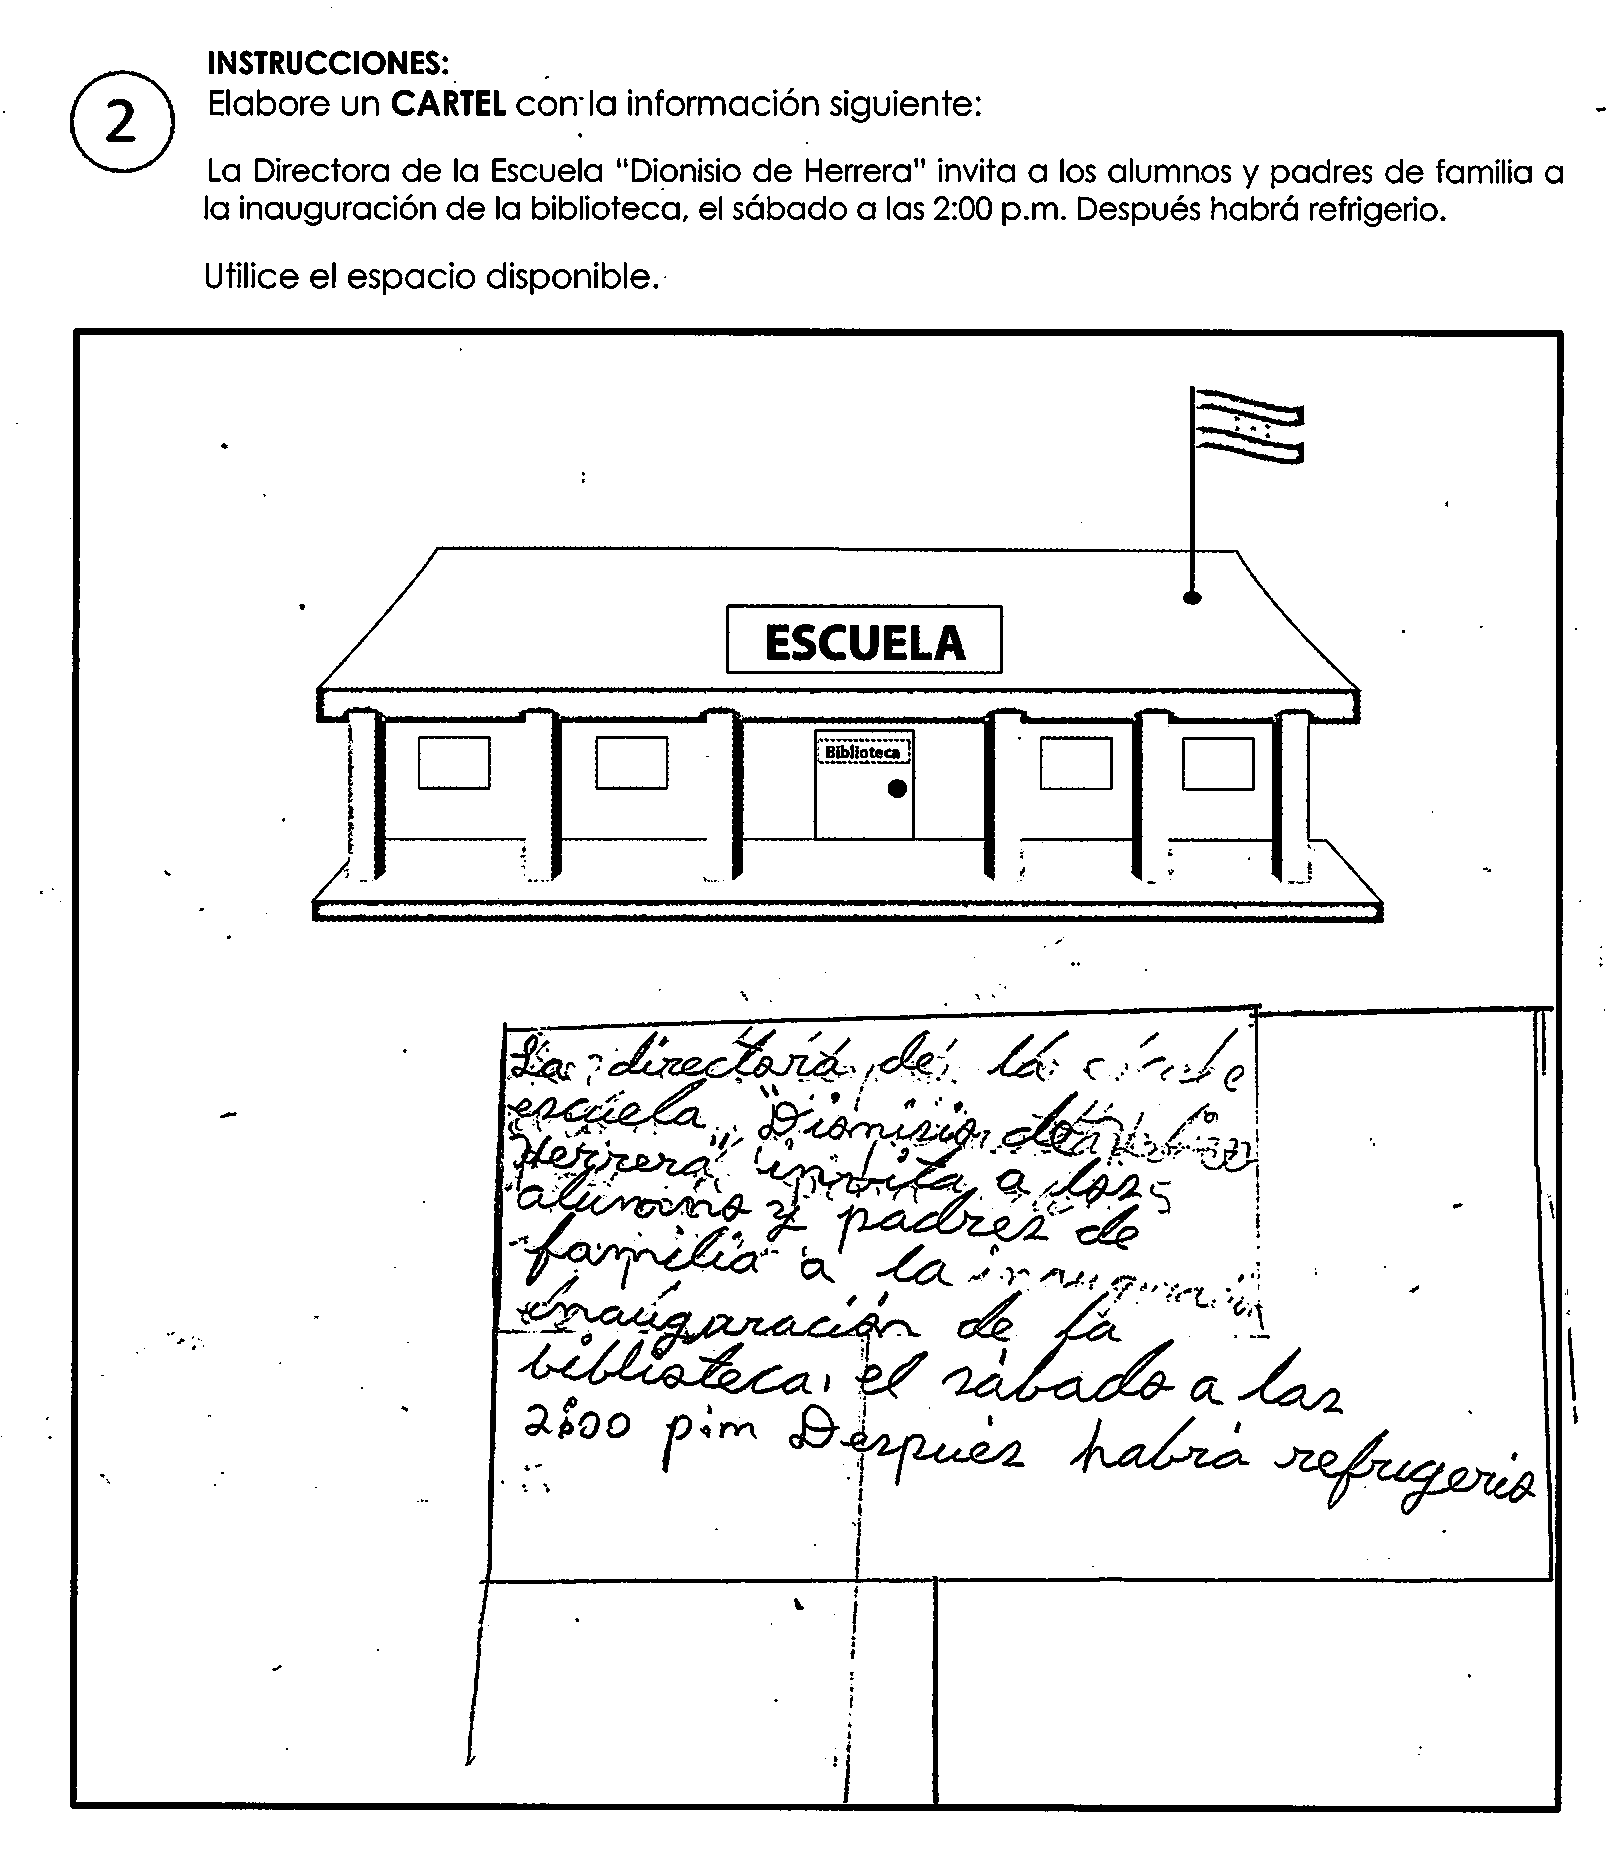 INSTRUCCIONES:
2
Elabore un CARTEL con la información siguiente:
La Directora de la Escuela "Dionisio de Herrera" invita a los alumnos y padres de familia a
la inauguración de la biblioteca, el sábado a las 2:00 p.m. Después habrá refrigerio.
Utilice el espacio disponible.
ESCUELA
Biblioteca
La directora de la
escuela "Dionisio de
Herrera" invita a los
alumnos y padres de
familia a la
inauguración de la
biblioteca, el sábado a las
2:00 p.m Después habrá refrugerio